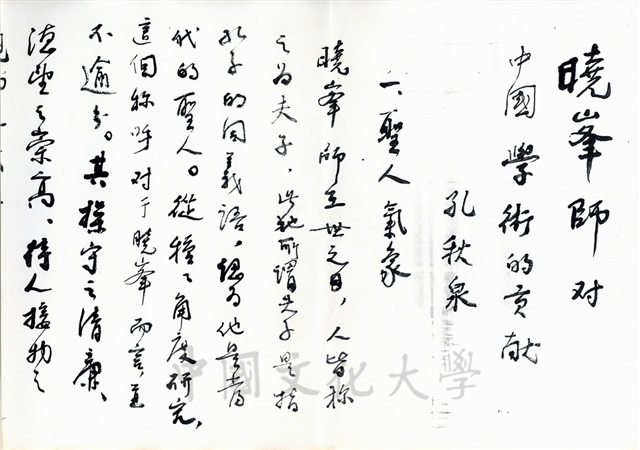 曉峯師对
中國學術的貢献
孔秋泉
一、聖人氣象
曉峯師在世之日，人皆称
之為夫子，此地所謂夫子是指
孔子的同義語，認為他是當
代的聖人。從種々角度研究，
這個称呼对于曉峯而言，並
不逾分。其操守之清廉、
德望之崇高、待人接物之
中國文化大學